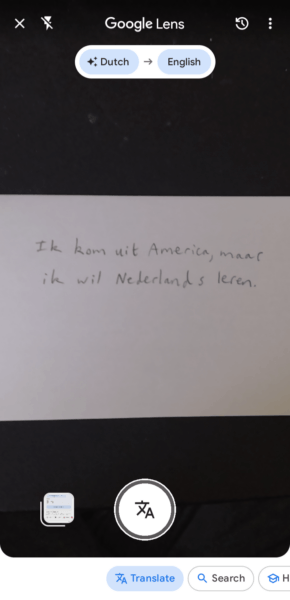 Google Lens
Dutch → English
Ik kom uit America, maar
ik wil Nederlands leren.
Translate
Search
H